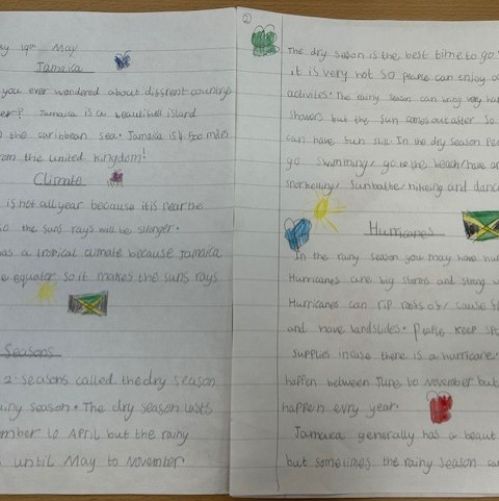 ay 19th May
Jamaica
you ever wondered about different country
Jamaica is a beautifull island
the caribbean sea. Jamaica is 4,500 miles
from the united kingdom!
Climate
is hot all year because it is near the
so the suns rays will be stronger.
has a tropical climate because Jamaica
e equator so it makes the suns rays
Seasons
2 seasons called the dry season
ainy season. The dry season lasts
mber to April but the rainy
until May to November
2
The dry season is the best time to go
it is very hot so people can enjoy
activites. The rainy season can bring very
showers but the sun comes out after. So
can have fun still. In the dry season
go swimming/ go to the beach/
snorkelling/ sunbathe/ hikeing and
Hurricanes
In the rainy season you may have
Hurricanes are big storms and strong
Hurricanes can rip roofs of/ cause
and have landslides. People keep
supplies incase there is a hurricane.
happen between June to November but
happen evry year.
Jamaica generally has a
but sometimes the rainy season